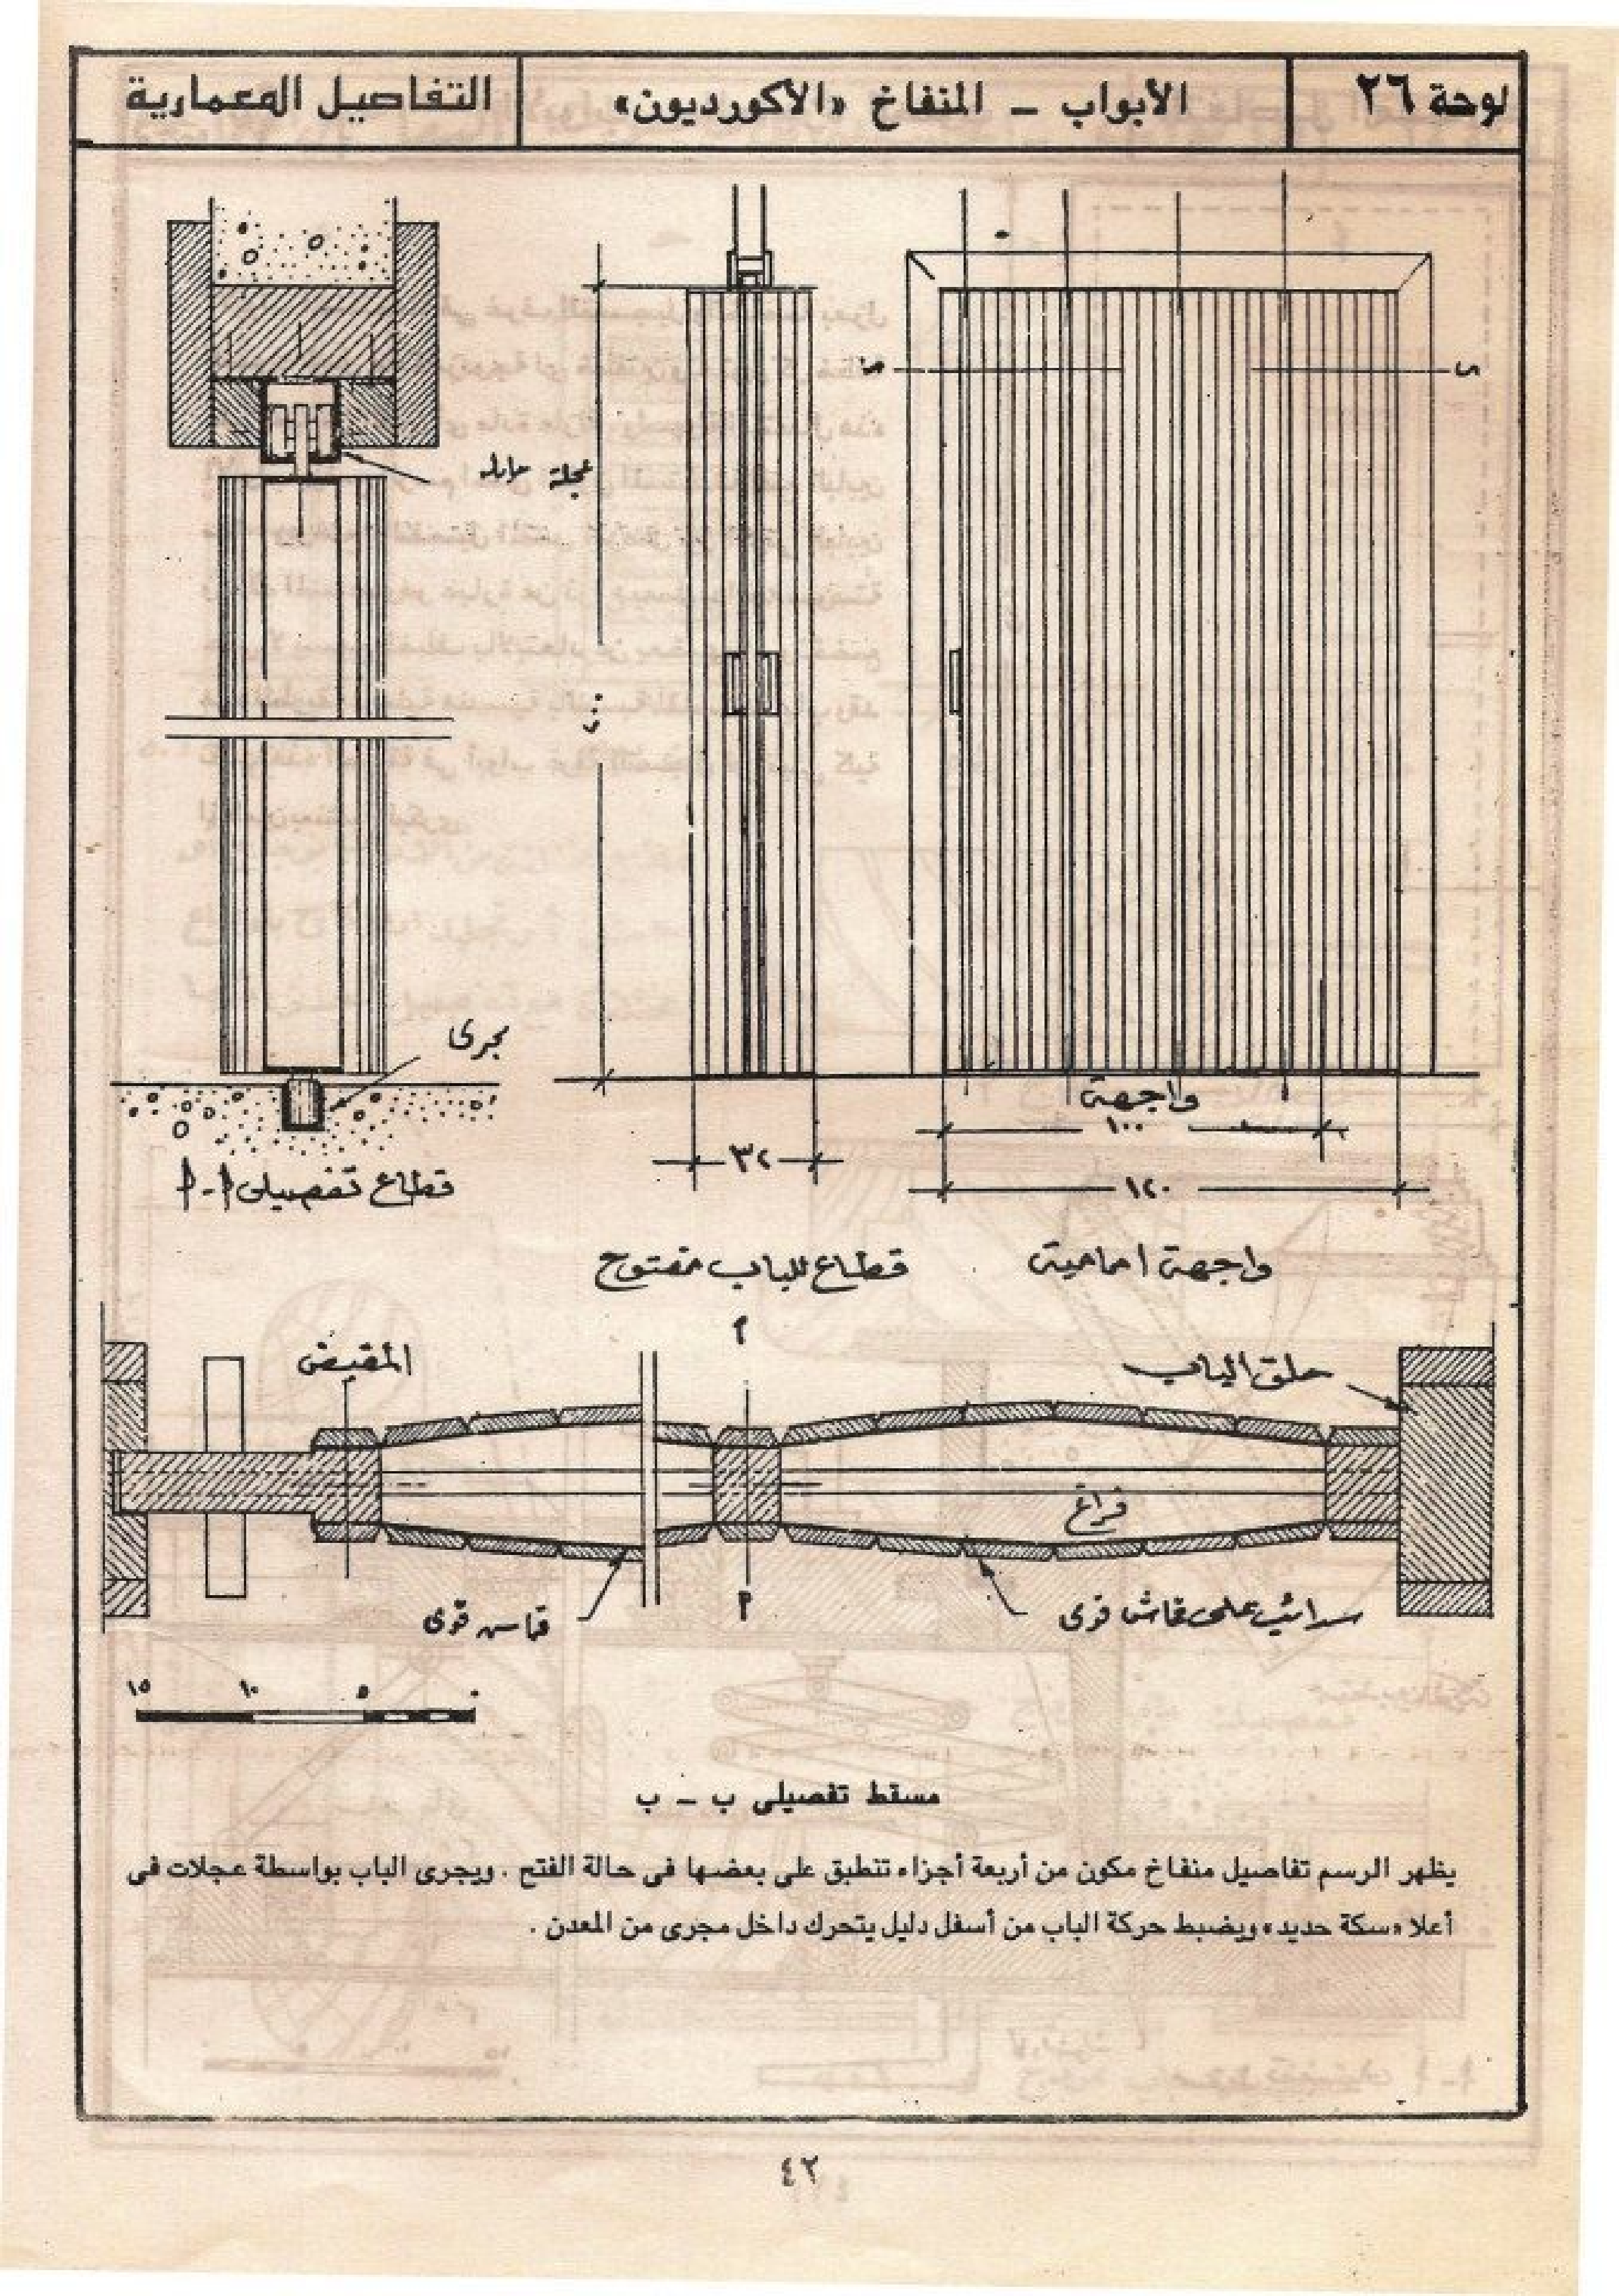 لوحة ٢٦
الأبواب – المنفاخ «الأكورديون»
التفاصيل المعمارية
عجلة
مجرى
قطاع تفصيلى أ-أ
٣٢
واجهة
١٠٠
١٢٠
قطاع للباب مفتوح
واجهة امامية
المقبض
أ
حلق الباب
فراغ
قماش قوى
أ
سدائب على قماش قوى
١٥ ١٠ ٥ ٠
مسقط تفصيلى ب – ب
يظهر الرسم تفاصيل منفاخ مكون من أربعة أجزاء تنطبق على بعضها فى حالة الفتح . ويجرى الباب بواسطة عجلات فى
أعلا «سكة حديد» ويضبط حركة الباب من أسفل دليل يتحرك داخل مجرى من المعدن .
٤٢